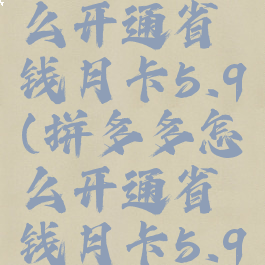 么开通省
钱月卡5.9
(拼多多怎
么开通省
钱月卡5.9